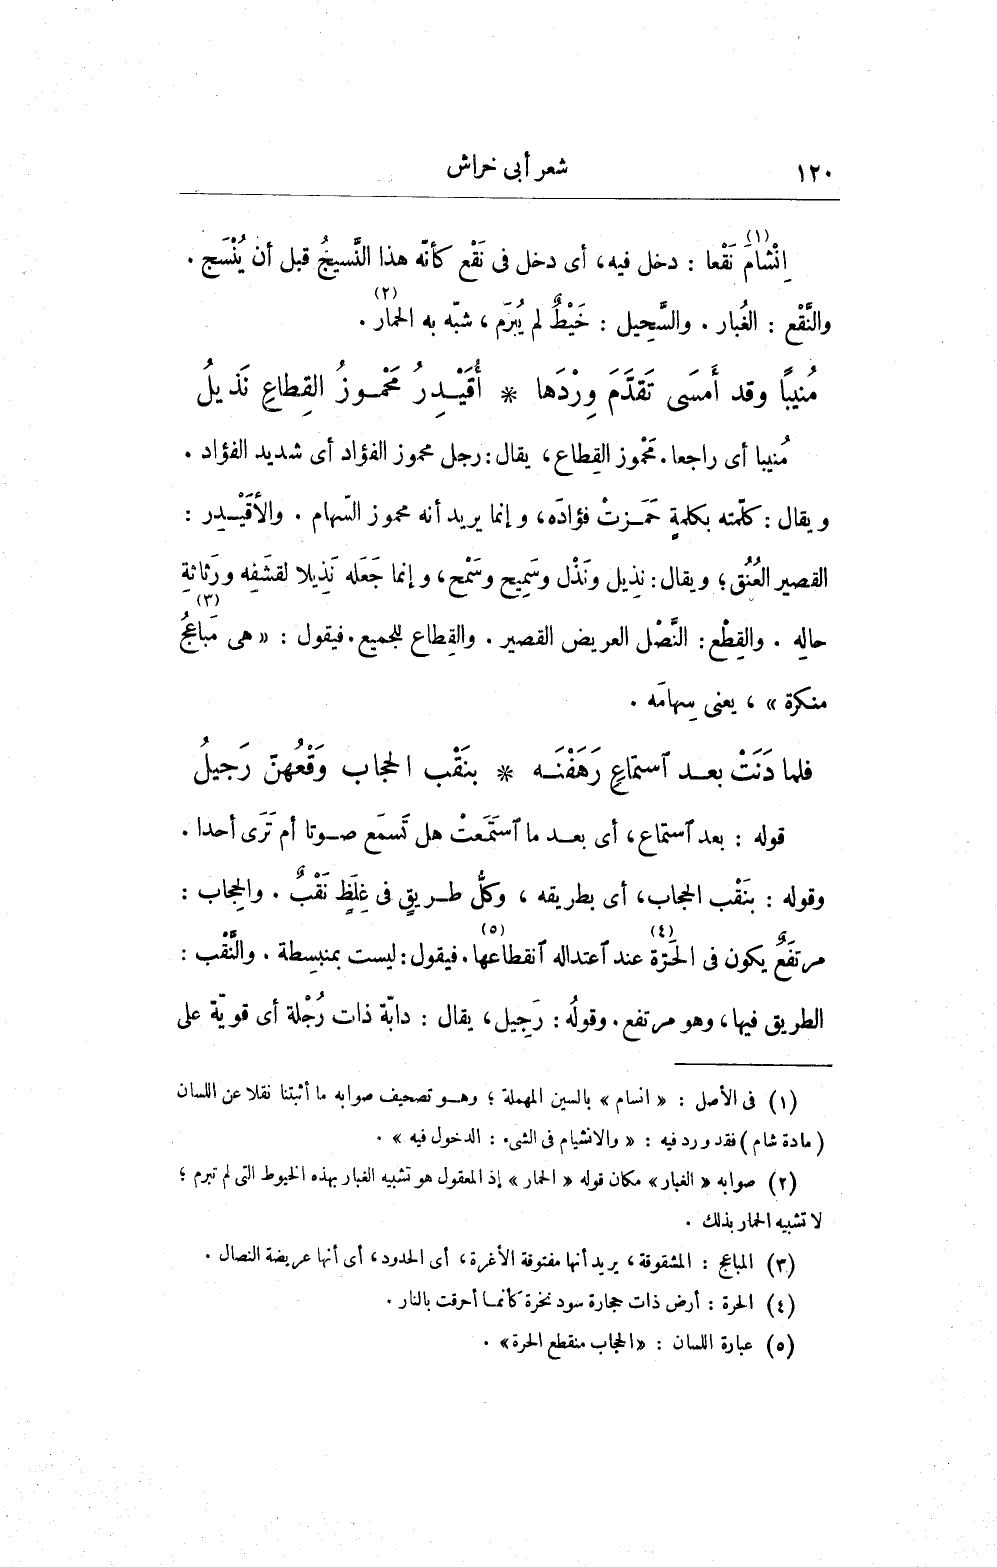 ١٢٠ شعر أبى خراش
اِنْشامَ (١) نَقْعا : دخل فيه، أى دخل فى نَقْع كأنّه هذا النَّسيجُ قبل أن يُنْسَج .
والنَّقْع : الغُبار . والسَّحِيل : خَيْطٌ لم يُبرَم ، شبّه به الحمار (٢) .
مُنيبًا وقد أَمسَى تَقدَّمَ وِرْدَها * أُقَيْـدِرُ مَحْمـوزُ القِطاعِ نَذيلُ
مُنيبا أى راجعا. مَحْموز القِطاع، يقال: رجل محموز الفؤاد أى شديد الفؤاد .
ويقال : كلّمته بكلمةٍ حَمَـزتْ فؤادَه، وإنما يريد أنه محموز السّهام . والأُقَيْـدِر :
القصير العُنُق؛ ويقال: نذِيل ونَذْل وسَمِيح وسَمْح، وإنما جَعَله نَذِيلا لقشَفِه ورَثاثةِ
حالِه . والقِطْع: النَّصْل العريض القصير . والقِطاع للجميع. فيقول : « هى مَباعجُ (٣)
منكرة » ، يعنى سِهامَه .
فلما دَنَتْ بعـد ٱستماعٍ رَهَفْنَـه * بنَقْب الحجاب وَقْعُهنّ رَجيلُ
قوله : بعد ٱستماع، أى بعـد ما ٱستَمَعتْ هل تَسمَع صـوتا أم تَرَى أحدا .
وقوله : بنَقْب الحجاب، أى بطريقه ، وكلُّ طـريقٍ فى غِلَظٍ نَقْبٌ . والحِجاب :
مرتفَعٌ يكون فى الحَرّة (٤) عند ٱعتداله ٱنقطاعها (٥). فيقول: ليست بمنبسِطة . والنَّقْب :
الطريق فيها، وهو مرتفع. وقولُه : رَجِيل، يقال : دابّة ذات رُجْلة أى قويّة على
(١) فى الأصل : « انسام » بالسين المهملة ؛ وهـو تصحيف صوابه ما أثبتنا نقلا عن اللسان
(مادة شام) فقد ورد فيه : « والانشيام فى الشىء : الدخول فيه » .
(٢) صوابه « الغبار» مكان قوله « الحمار » إذ المعقول هو تشبيه الغبار بهذه الخيوط التى لم تبرم ؛
لا تشبيه الحمار بذلك .
(٣) المباعج : المشقوقة ، يريد أنها مفتوقة الأغرة، أى الحدود، أى أنها عريضة النصال .
(٤) الحرة : أرض ذات حجارة سود نخرة كأنمـا أحرقت بالنار .
(٥) عبارة اللسان : «الحجاب منقطع الحرة» .